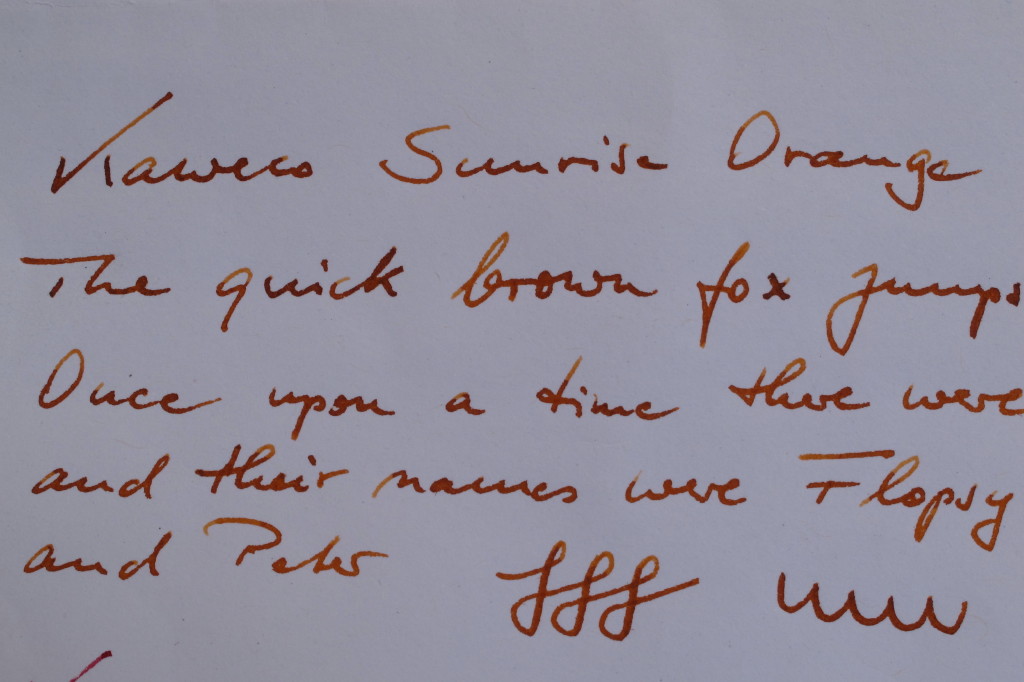 Kaweco Sunrise Orange
The quick brown fox jumps
Once upon a time there were
and their names were Flopsy
and Peter